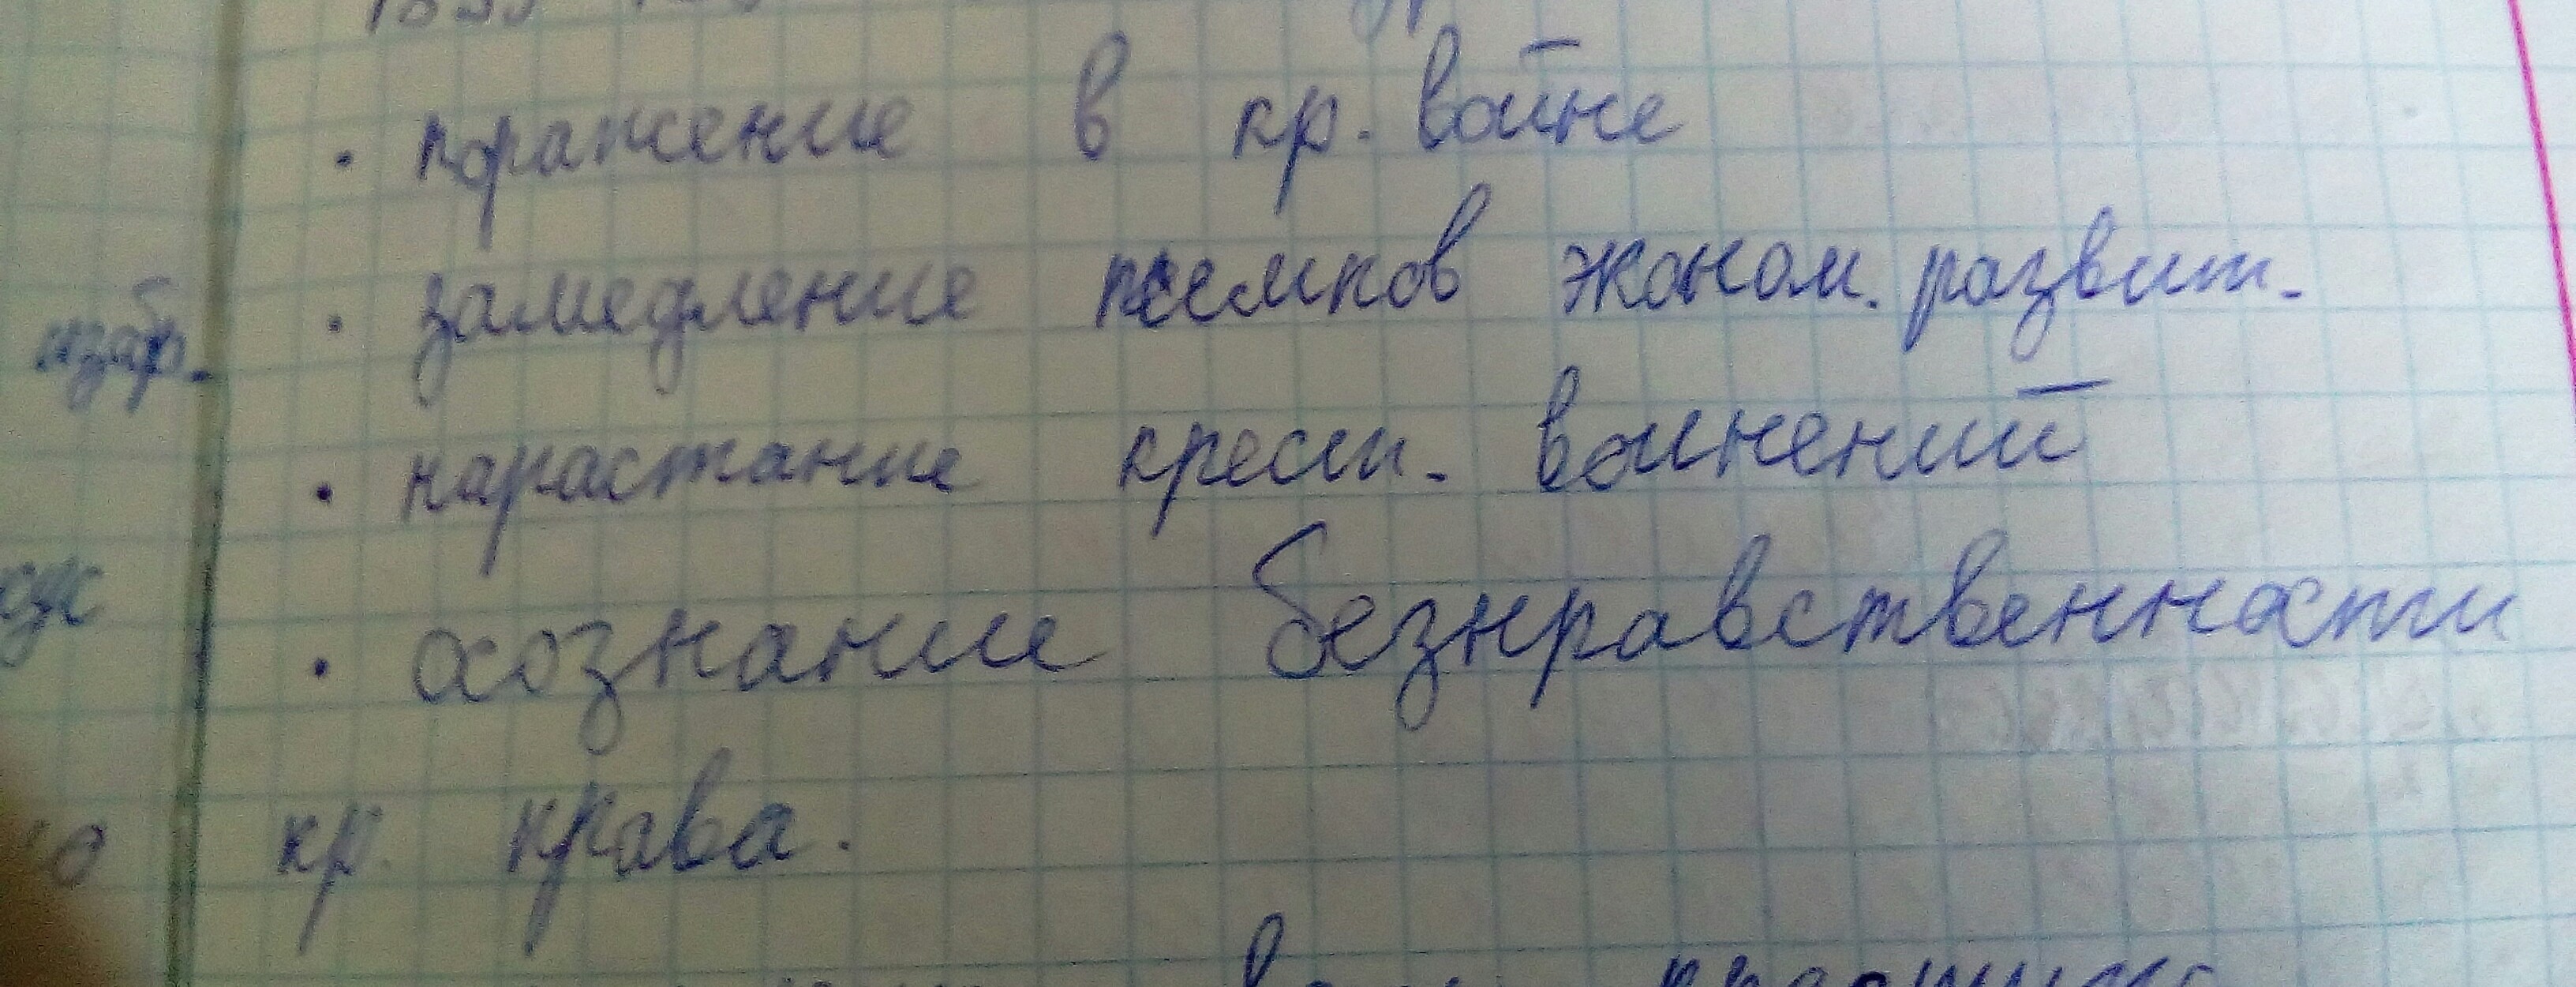 · поражение в кр. войне
· замедление темпов эконом. развит.
изобр.
· нарастание крест. волнений
· осознание безнравственности
кр. права.